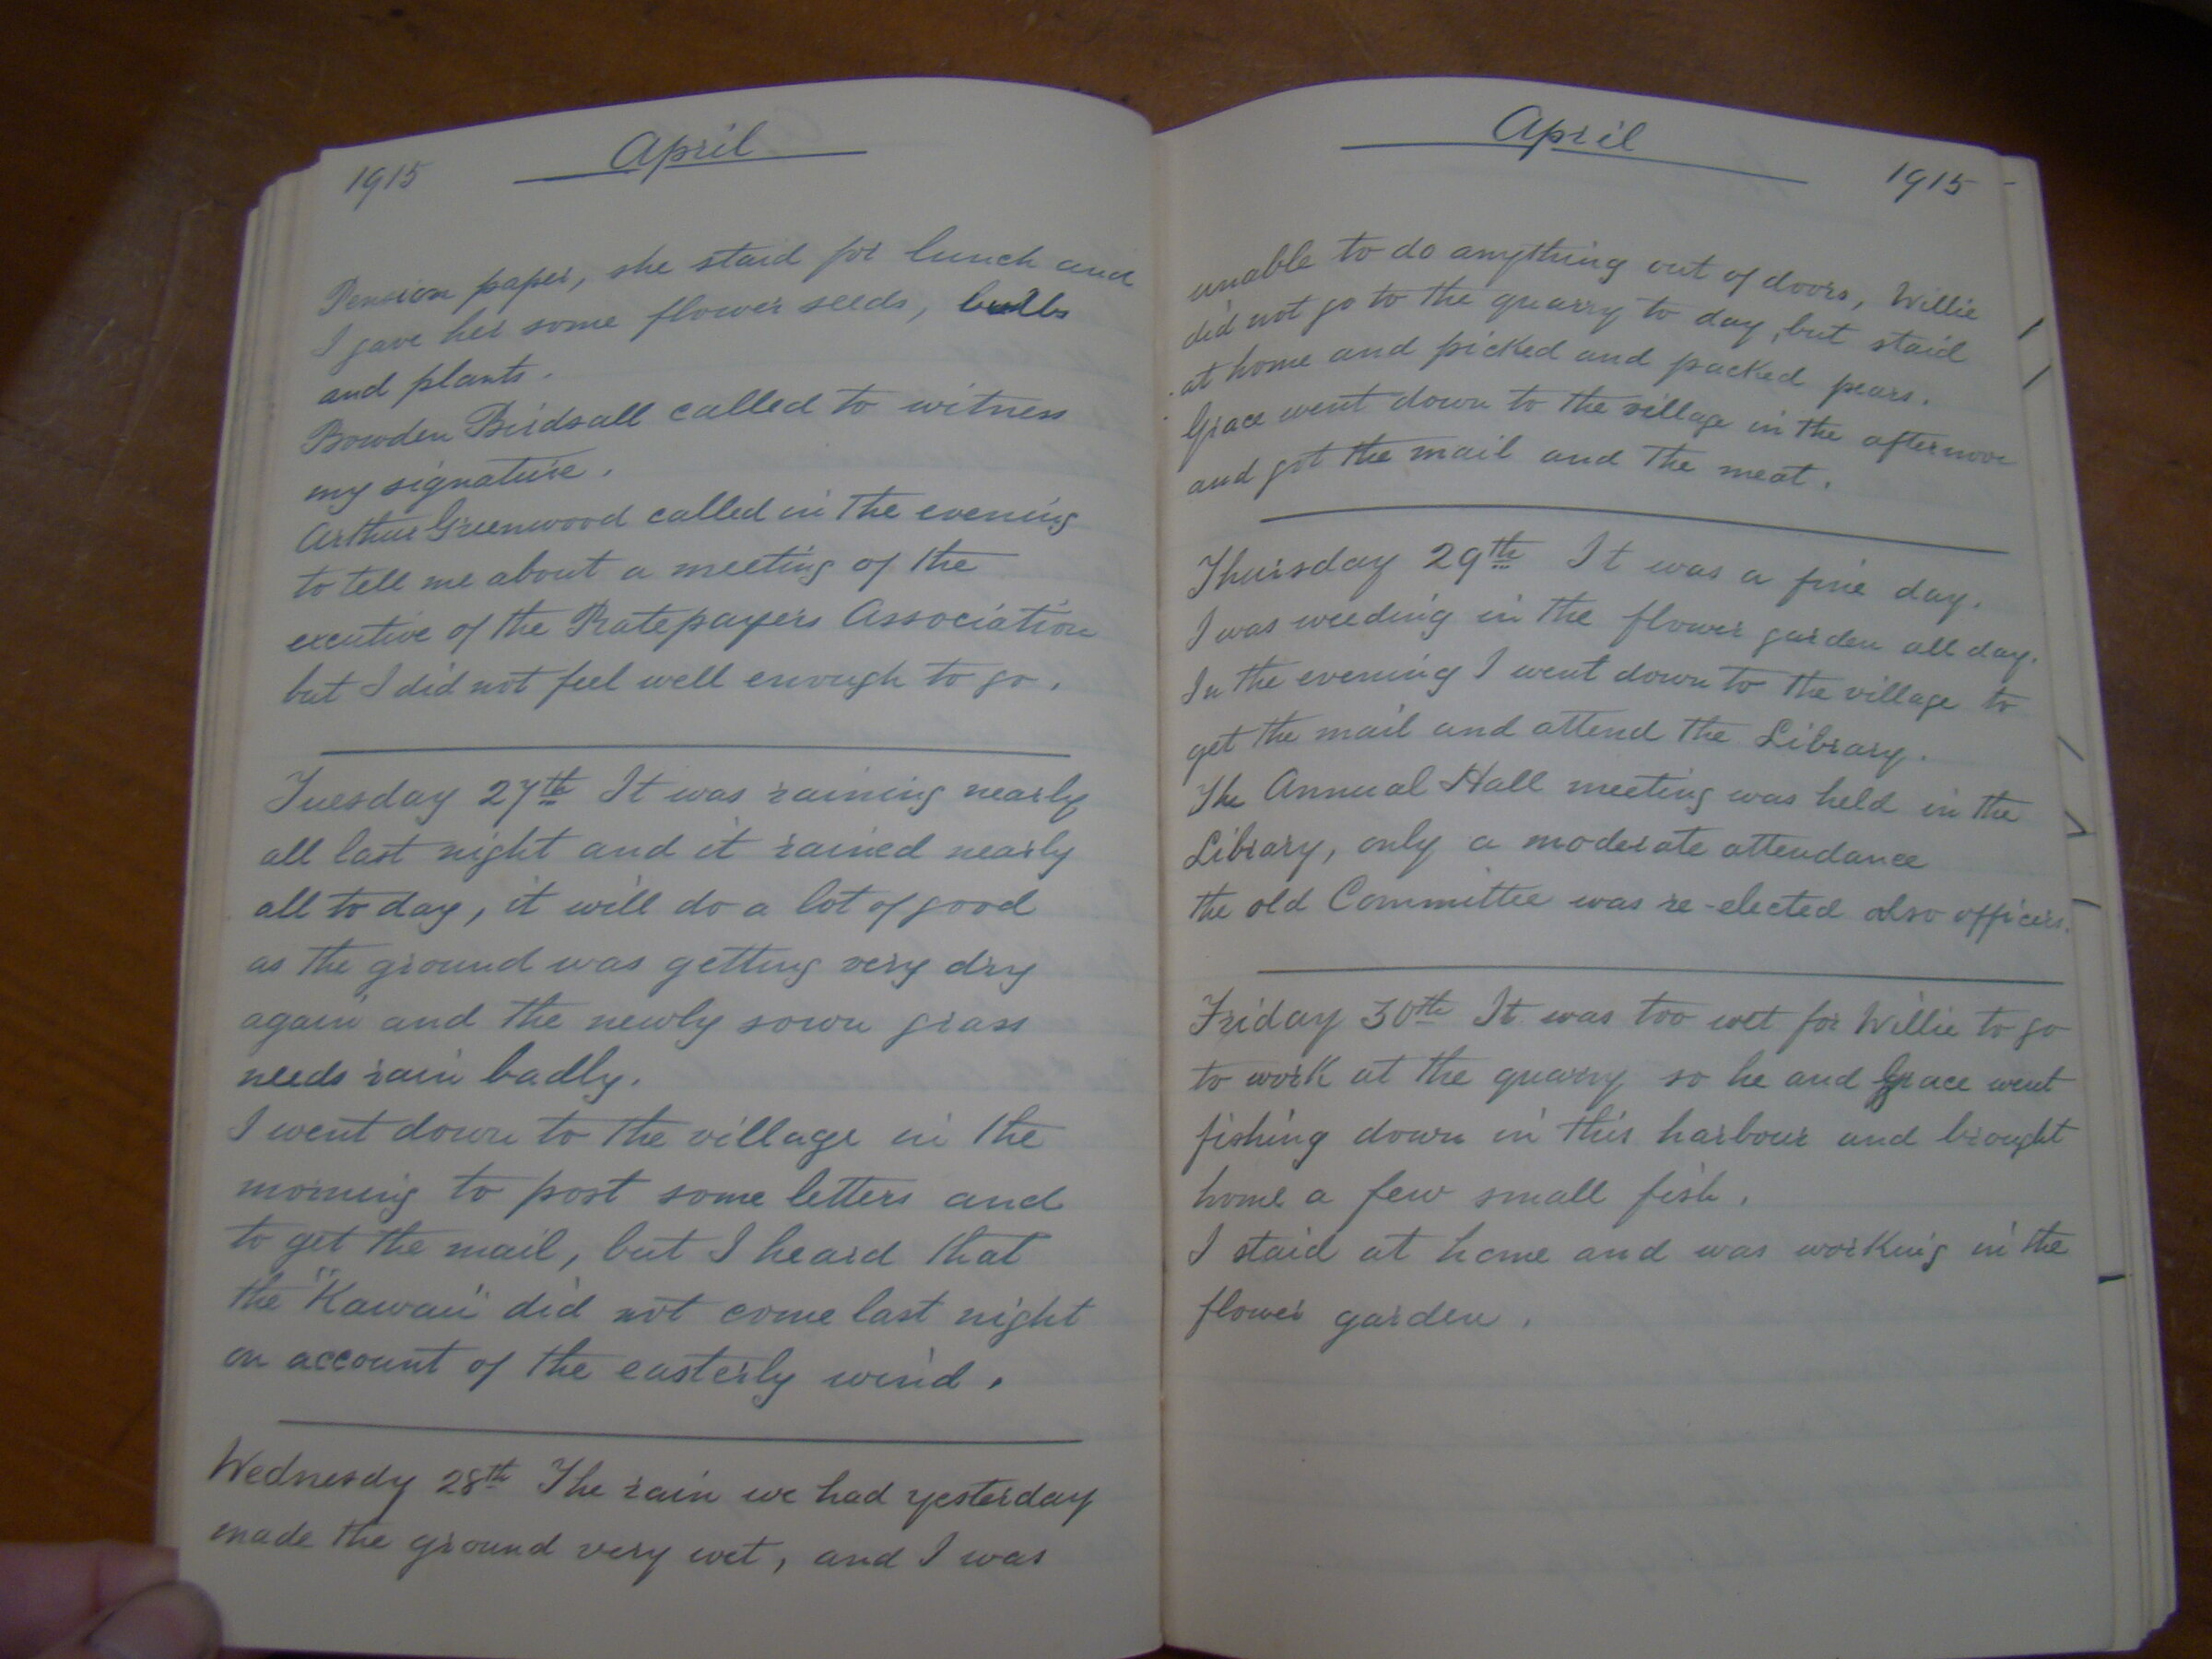 April
1915
Pension paper, she staid for lunch and
I gave her some flower seeds, bulbs
and plants.
Bowden Birdsall called to witness
my signature.
Arthur Greenwood called in the evening
to tell me about a meeting of the
excutive of the Ratepayers Association
but I did not feel well enough to go.
Tuesday 27th It was raining nearly
all last night and it rained nearly
all to day, it will do a lot of good
as the ground was getting very dry
again and the newly sown grass
needs rain badly.
I went down to the village in the
morning to post some letters and
to get the mail, but I heard that
the "Kawau" did not come last night
on account of the easterly wind.
Wednesdy 28th The rain we had yesterday
made the ground very wet, and I was
April
1915
unable to do anything out of doors, Willie
did not go to the quarry to day, but staid
at home and picked and packed pears.
Grace went down to the village in the afternoon
and got the mail and the meat.
Thursday 29th It was a fine day.
I was weeding in the flower garden all day.
In the evening I went down to the village to
get the mail and attend the Library.
The Annual Hall meeting was held in the
Library, only a moderate attendance
the old Committee was re-elected also officers.
Friday 30th It was too wet for Willie to go
to work at the quarry so he and Grace went
fishing down in this harbour and brought
home a few small fish.
I staid at home and was working in the
flower garden.